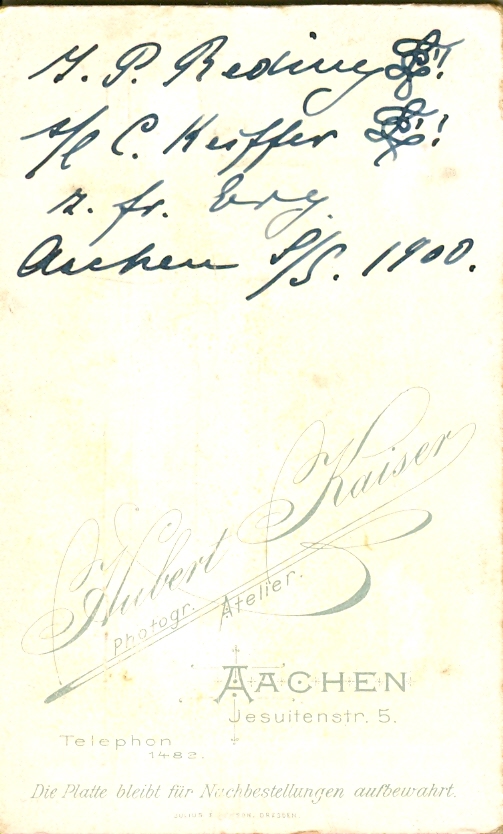 J. P. Reding
s/l C. Keiffer
z. fr. Erg.
Aachen S/S. 1900.
Hubert Kaiser
Photogr. Atelier.
AACHEN
Jesuitenstr. 5.
Telephon
1482.
Die Platte bleibt für Nachbestellungen aufbewahrt.
JULIUS DRESDEN.